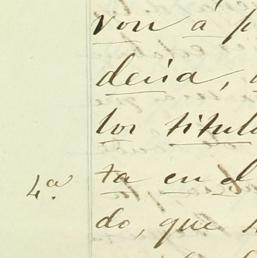 ron á p
deria,
los titul
4ª. ta en el
do, que